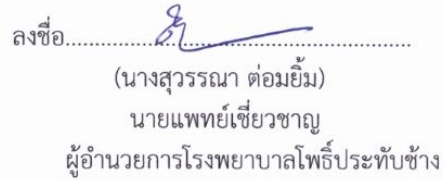 ลงชื่อ......................................................
(นางสุวรรณา ต่อมยิ้ม)
นายแพทย์เชี่ยวชาญ
ผู้อำนวยการโรงพยาบาลโพธิ์ประทับช้าง